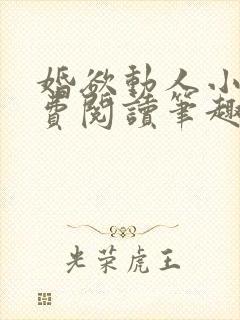 婚欲動人小
費閱讀筆趣
光荣虎王